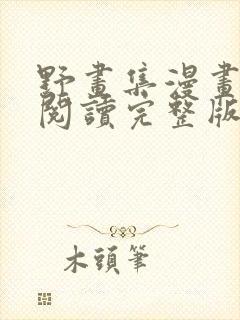 野畫集漫畫
閱讀完整版
木頭筆